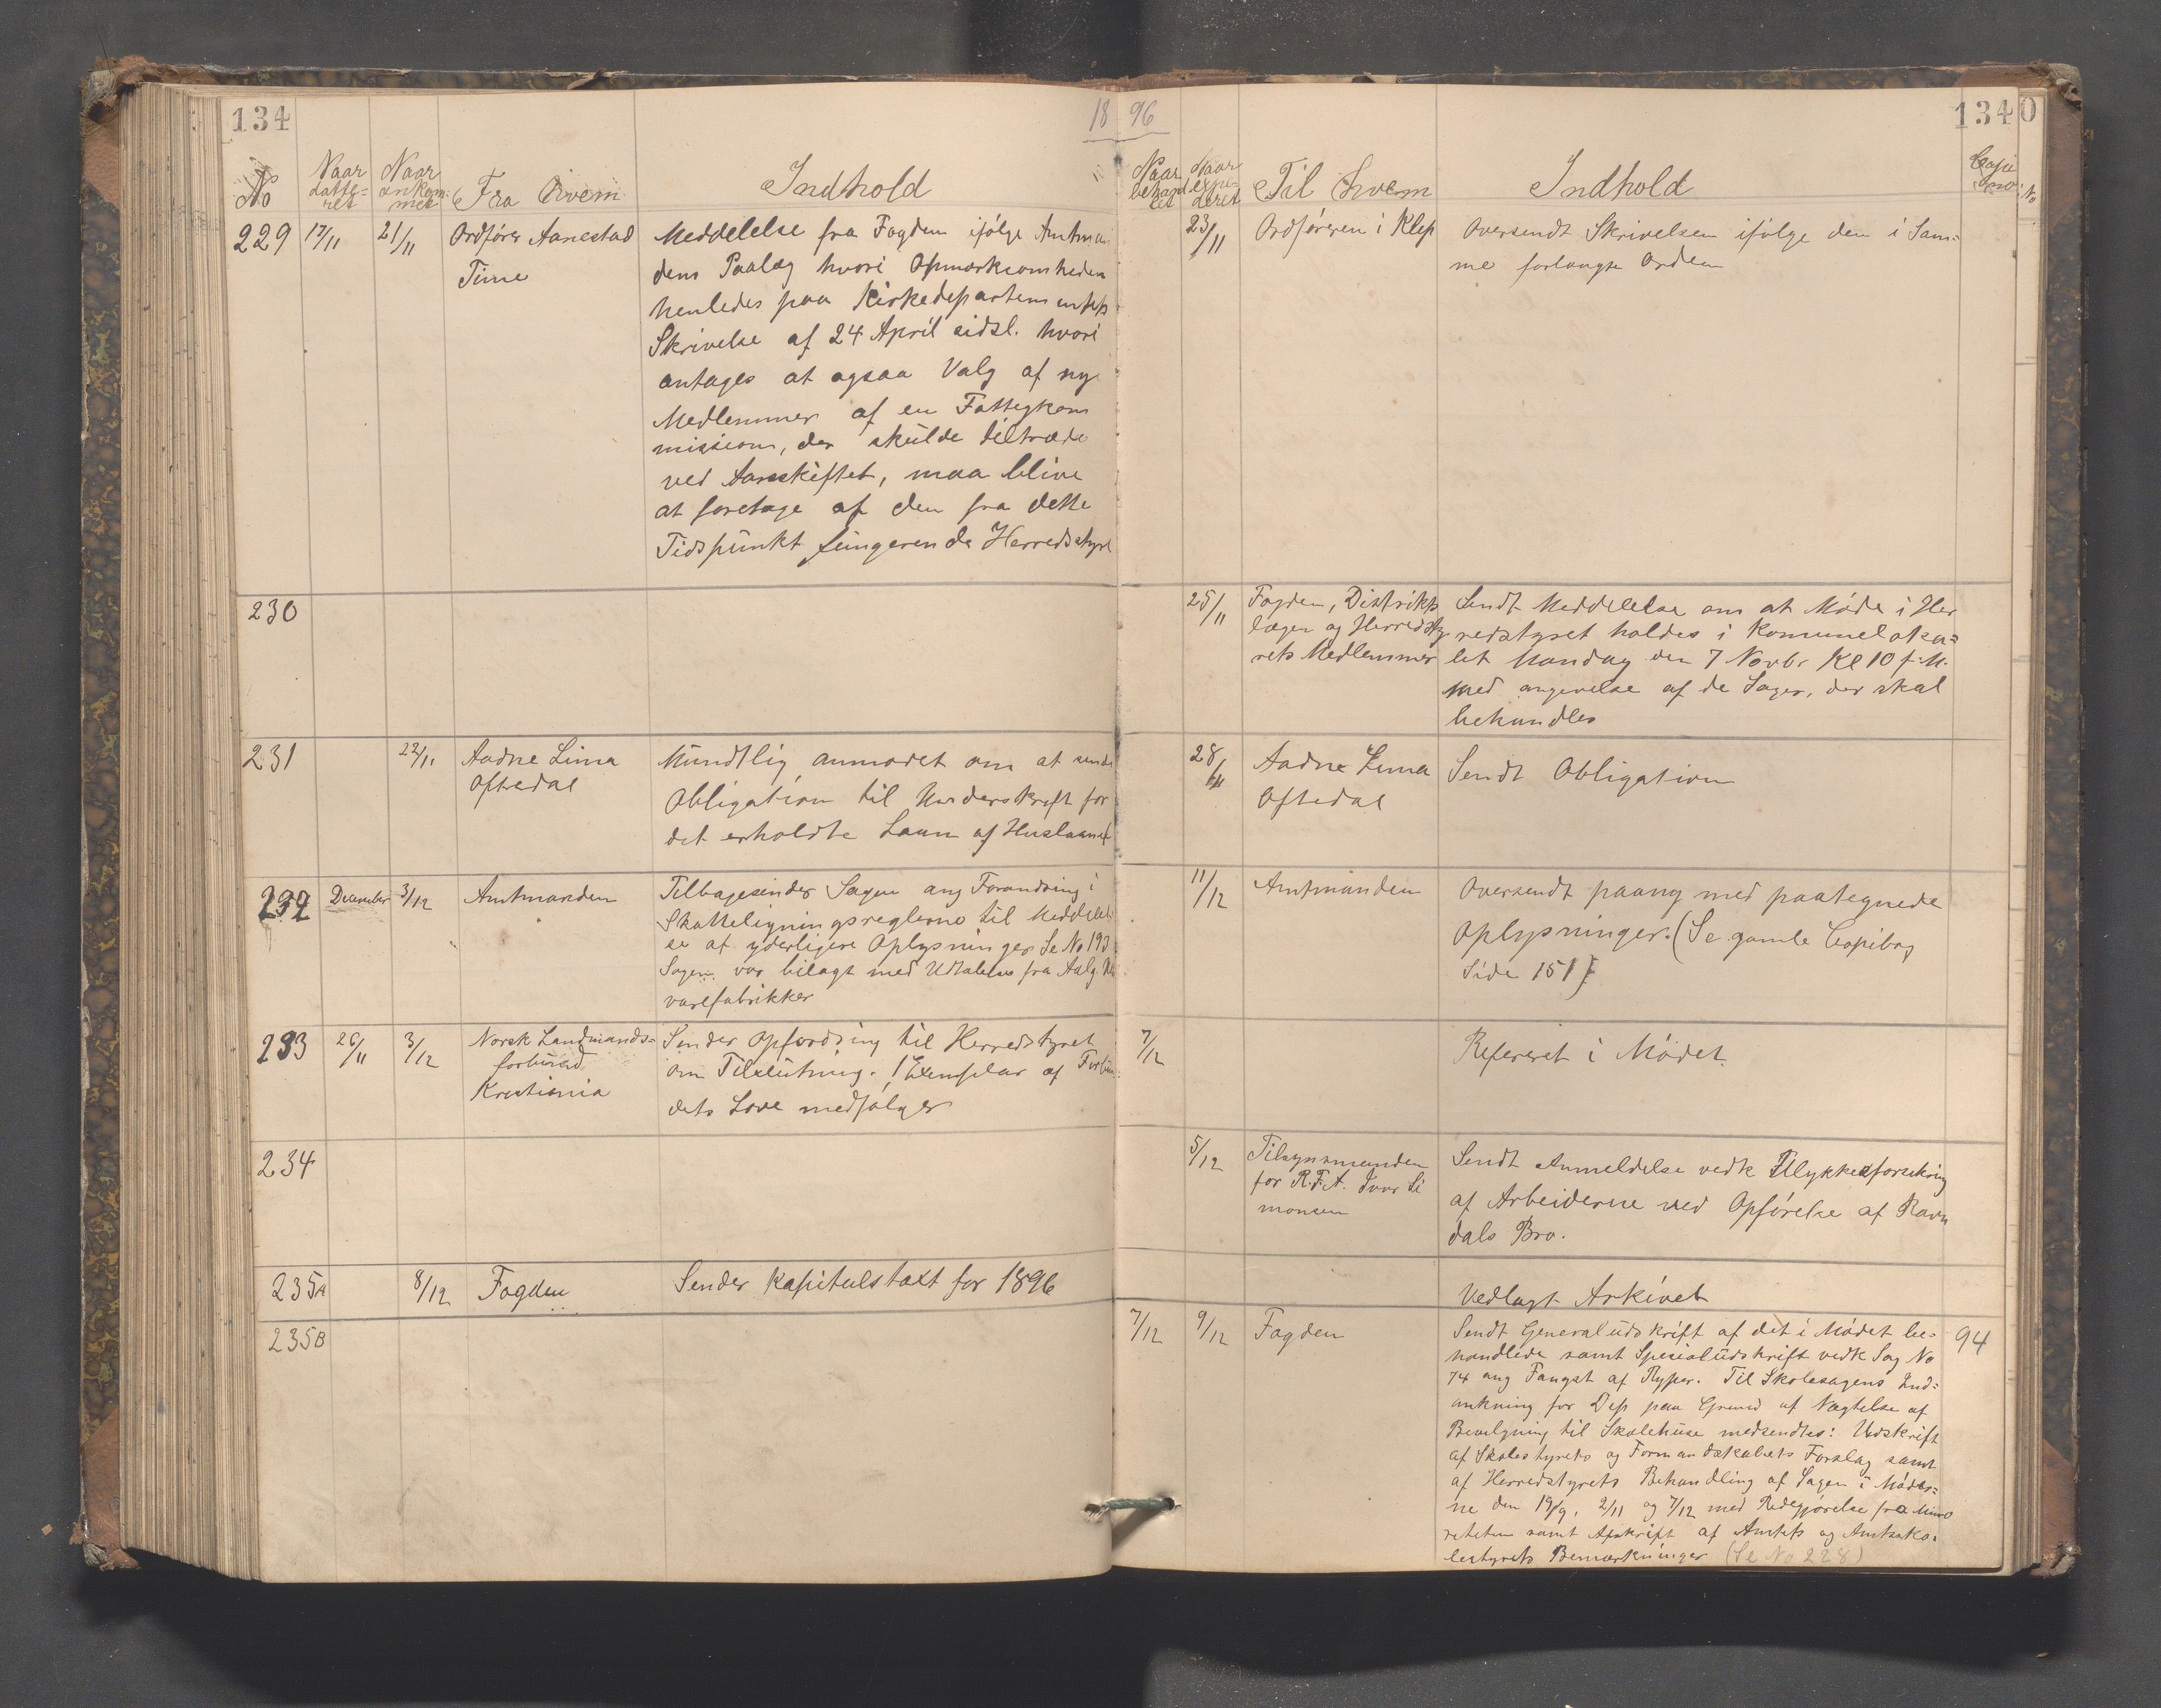 134
18 96
134
0
No
Naar datte- ret
Naar ankom- met
Fra Hvem
Indhold
Naar behand let
Naar expe- deret
Til Hvem
Indhold
Copi
No
229 17/11 21/11 Ordfører Aanestad
Time
Meddelelse fra Fogden ifølge Amtman
dens Paalæg hvori Opmærksomheden
henledes paa Kirkedepartementets
Skrivelse af 24 April sidsl. hvori
antages at ogsaa Valg af nye
Medlemmer af en Fattigkom
mission, der skulde tiltræde
ved Aarsskiftet, maa blive
at foretage af den fra dette
Tidspunkt fungerende Herredsstyre
23/11 Ordføreren i Klep
Oversendt Skrivelsen ifølge den i Sam=
me forlangte Orden
230
25/11 Fogden, Distrikts
lægen og Herredsty
rets Medlemmer
Sendt Meddelelse om at Møde i Her
redstyret holdes i Komuneloka=
let Mandag den 7 Novbr Kl 10 f.M.
med angivelse af de Sager, der skal
behandles
231 22/11 Aadne Lima
Oftedal
Mundtlig anmodet om at sende
Obligation til Underskrift for
det erholdte Laan af Huslaanef
28/11 Aadne Lima
Oftedal
Sendt Obligation
232 December 3/12 Amtmanden
Tilbagesender Sagen ang Forandring i
Skatteligningsreglerne til Meddelel
se af yderligere Oplysninger Se No 193
Sagen var bilagt med Udtalelse fra Aalg.
varefabrikker
11/12 Amtmanden
Oversendt paany med paategnede
Oplysninger. (Se gamle Copibog
Side 151)
233 26/11 3/12 Norsk Landmands=
forbund
Kristiania
Sender Opfordring til Herredstyret
om Tilslutning. 1 Exemplar af Forbun
dets Love medfølger
7/12
Refereret i Mødet
234
5/12 Tilsynsmanden
for R.F.A. Ivar Si
monsen
Sendt Anmeldelse vedk Ulykkesforsikring
af Arbeiderne ved Opførelse af Ravn
dals Bro.
235A 8/12 Fogden
Sender Kapitulstaxt for 1896
Vedlagt Arkivet
235B
7/12 9/12 Fogden
Sendt Generaludskrift af det i Mødet be=
handlede samt Spesialudskrift vedk Sag No
74 ang Fangst af Ryper. Til Skolesagens Ind=
ankning for Dep paa Grund af Nægtelse af
Bevilgning til Skolehuse medsendtes: Udskrift
af Skolestyrets og Formandskabets Forslag samt
af Herredstyrets Behandling af Sagen i Møder=
ne den 19/9, 2/11 og 7/12 med Redegjørelse fra Mino
riteten samt Afskrift af Amtets og Amtssko=
lestyrets Bemærkninger (Se No 228)
94